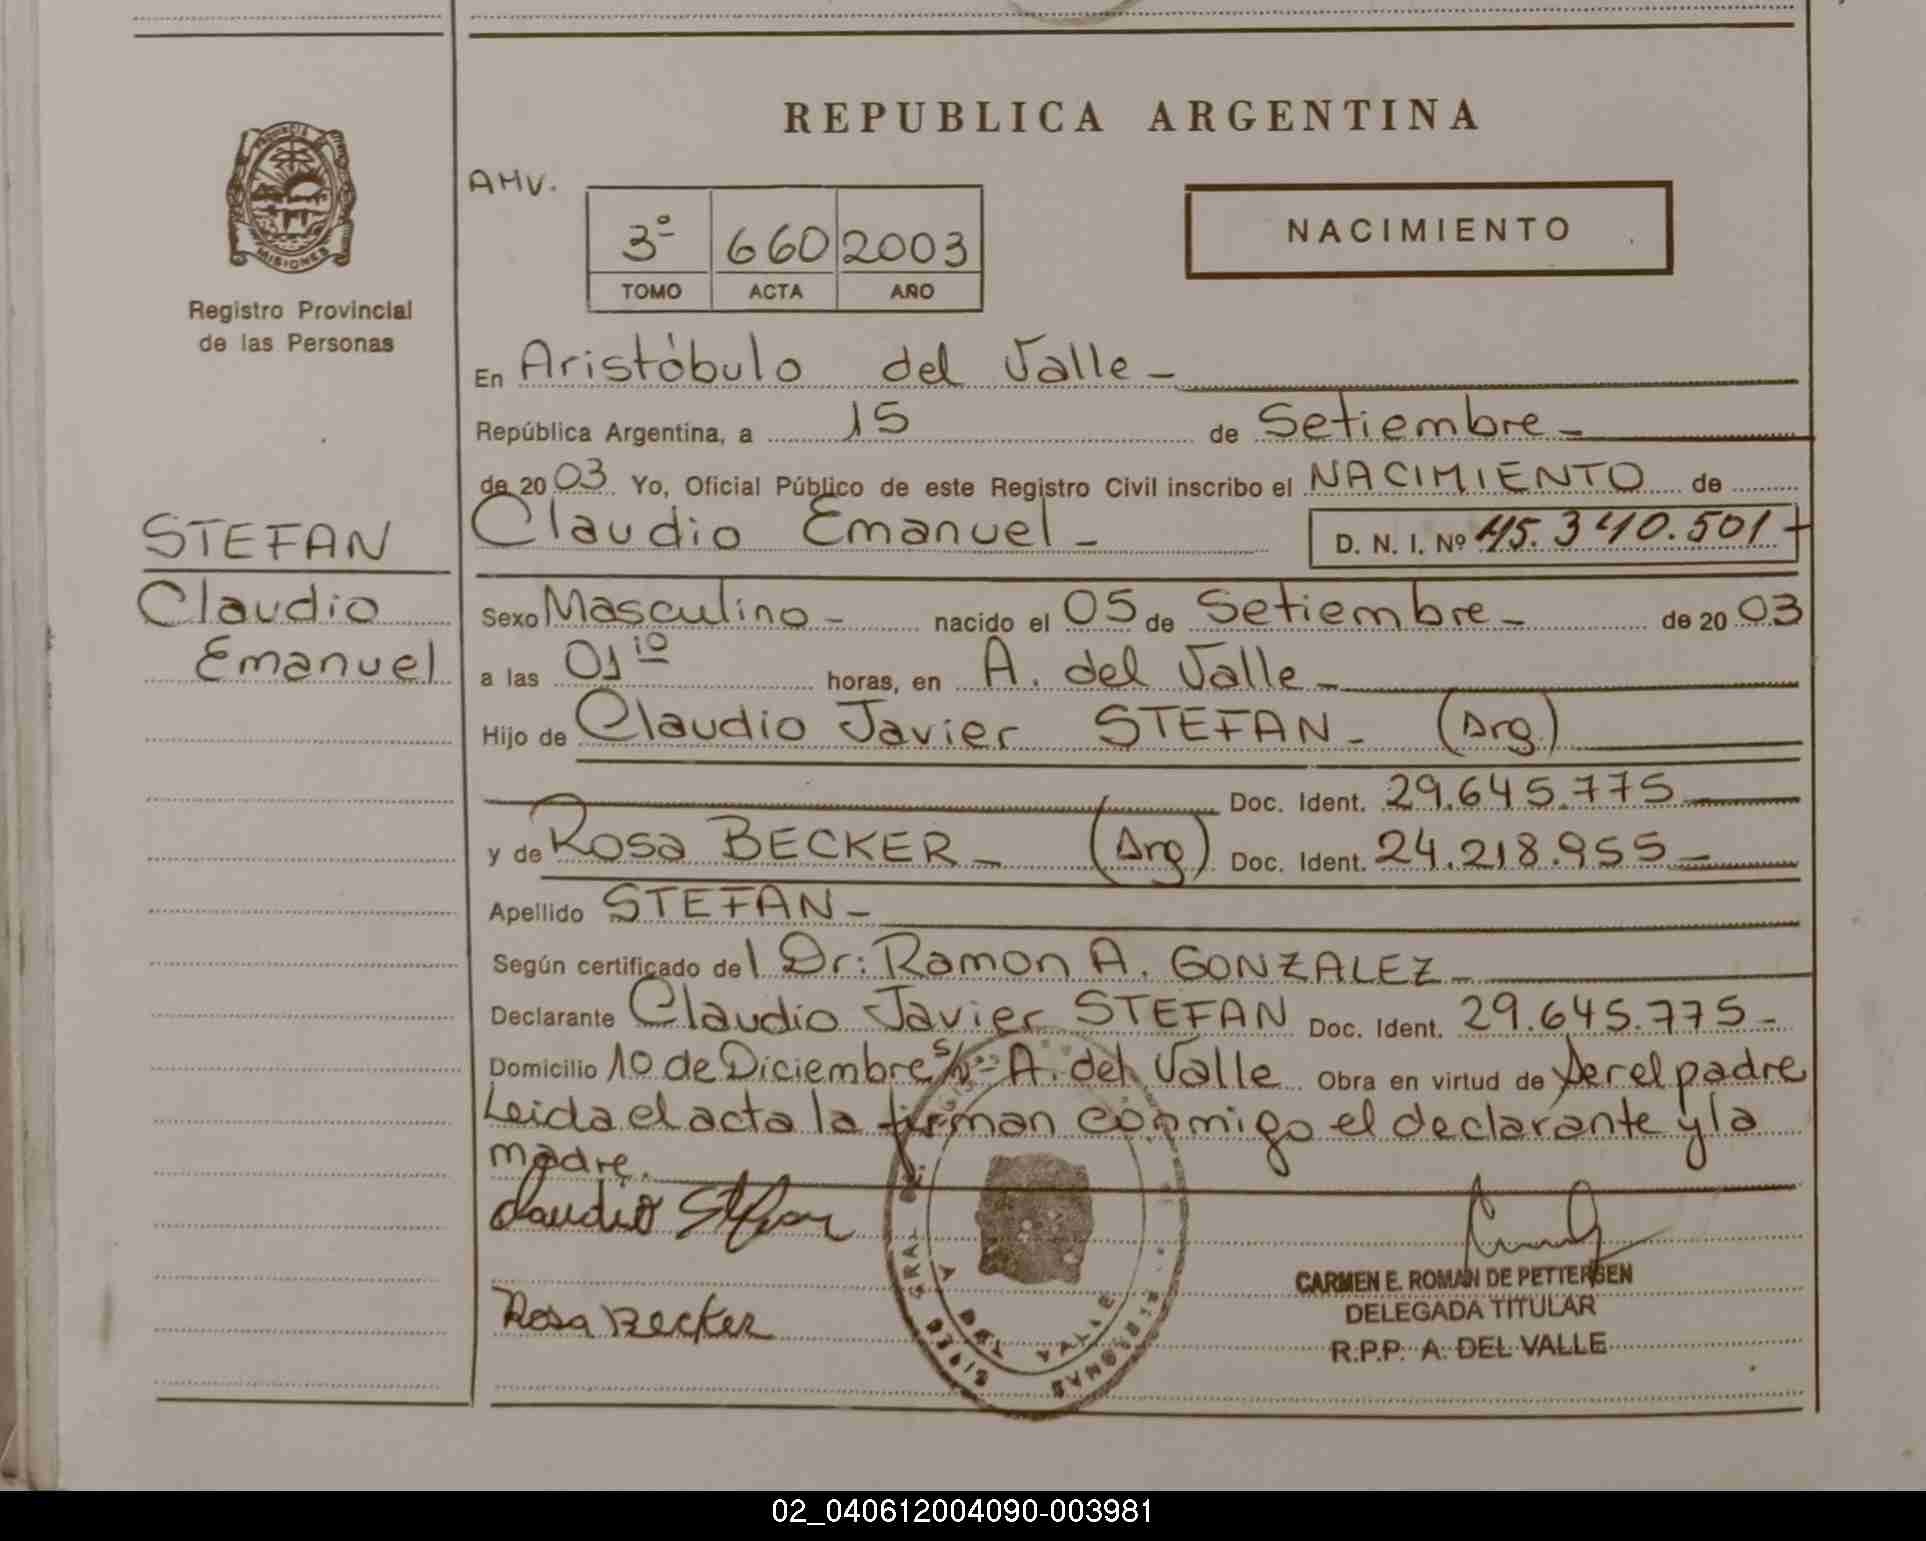 REPUBLICA ARGENTINA
PROVINCIA
MISIONES
Registro Provincial
de las Personas
AHV.
3º 660 2003
TOMO ACTA AÑO
NACIMIENTO
En Aristóbulo del Valle -
República Argentina, a 15 de Setiembre -
de 20 03 Yo, Oficial Público de este Registro Civil inscribo el NACIMIENTO de
STEFAN
Claudio
Emanuel
Claudio Emanuel - D. N. I. Nº 45.340.501
Sexo Masculino - nacido el 05 de Setiembre - de 20 03
a las 01 10 horas, en A. del Valle -
Hijo de Claudio Javier STEFAN - (Arg.)
Doc. Ident. 29.645.775
y de Rosa BECKER - (Arg) Doc. Ident. 24.218.955 -
Apellido STEFAN -
Según certificado del Dr: Ramon A. GONZALEZ
Declarante Claudio Javier STEFAN Doc. Ident. 29.645.775 -
Domicilio 10 de Diciembre s/nº A. del Valle Obra en virtud de ser el padre
Leida el acta la firman conmigo el declarante y la
madre.
Claudio Stefan
Rosa Becker
GRAL DEL VALLE
MISIONES
CARMEN E. ROMAN DE PETTERSEN
DELEGADA TITULAR
R.P.P. A. DEL VALLE
02_040612004090-003981